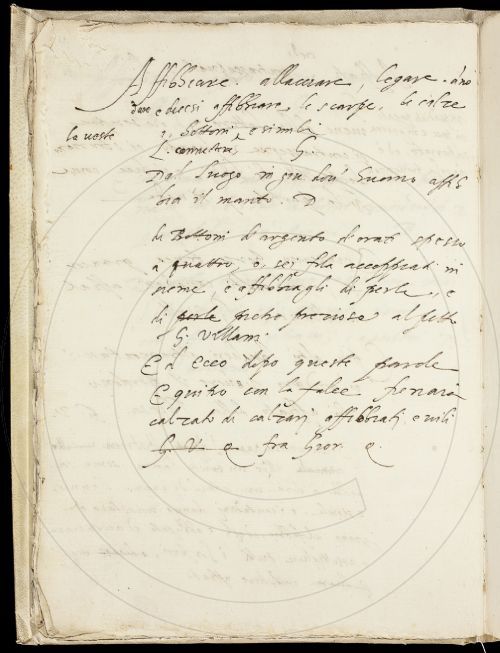 Affibbiare. allacciare, legare. anno
dare e dicesi affibbiare, le scarpe, le calze
la veste i bottoni, e simili
L. connettere, G.
Dal luogo in giu dov' huomo affib
bia il manto. D
di Bottoni d'argento dorati spesso
a quattro o sei fila accoppiati in
sieme, e affibbiagli di perle, e
di perle pietre preziose al petto
G. Villani
Ed ecco dopo queste parole
E quivi con la falce fienaia
calzato di calzari affibbiati e vili
G. V. e fra Gior. e